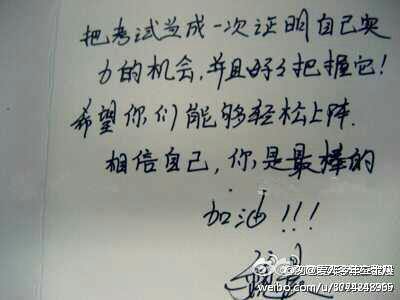 把考试当成一次证明自己实
力的机会,并且好好把握它!
希望你们能够轻松上阵.
相信自己,你是最棒的
加油!!!